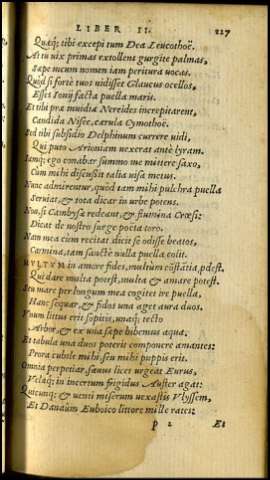 LIBER II. 227
Quaq; tibi excepi tum Dea Leucothoë.
At tu uix primas extollens gurgite palmas,
Sæpe meum nomen iam peritura uocas.
Quòd si forte tuos uidisset Glaucus ocellos,
Esses Ionij facta puella maris.
Et tibi præ inuidia Nereides increpitarent,
Candida Nisee, cærula Cymothoë.
Sed tibi subsidio Delphinum currere uidi,
Qui puto Arioniam uexerat ante lyram.
Iamq; ego conabar summo me mittere saxo,
Cum mihi discußit talia uisa metus.
Nunc admirentur, quòd tam mihi pulchra puella
Seruiat, & tota dicar in urbe potens.
Non, si Cambysæ redeant, & flumina Crœsi:
Dicat de nostro surge poeta toro.
Nam mea cùm recitat dicit se odisse beatos,
Carmina tam sanctè nulla puella colit.
MVLTVM in amore fides, multùm cõstãtia pdest.
Qui dare multa potest, multa & amare potest.
Seu mare per longum mea cogitet ire puella,
Hanc sequar, & fidos una aget aura duos.
Vnum littus erit sopitis, unaq; tecto
Arbor, & ex una sæpe bibemus aqua.
Et tabula una duos poterit componere amantes:
Prora cubile mihi, seu mihi puppis erit.
Omnia perpetiar, sæuus licet urgeat Eurus,
Velaq; in incertum frigidus Auster agat:
Quicunq; & uenti miserum uexastis Vlyssem,
Et Danaûm Euboico littore mille rates:
p 2 Et